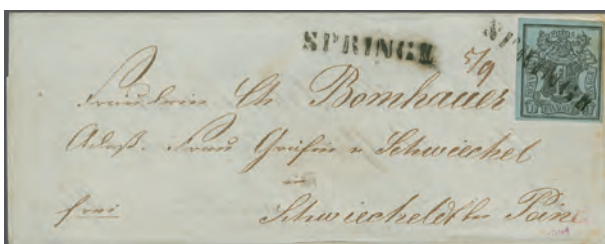 SPRINGE
SPRINGE
5/9
Fräulein Ch Bomhauer
Adß. Frau Gräfin v Schwiechel
in
frei Schwiecheldt bei Peine